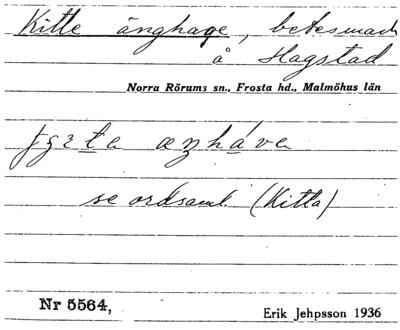 Kitte änghage, betesmark
å Hagstad
Norra Rörums sn., Frosta hd., Malmöhus län
se ordsaml. (Kitta)
Nr 5564,
Erik Jehpsson 1936